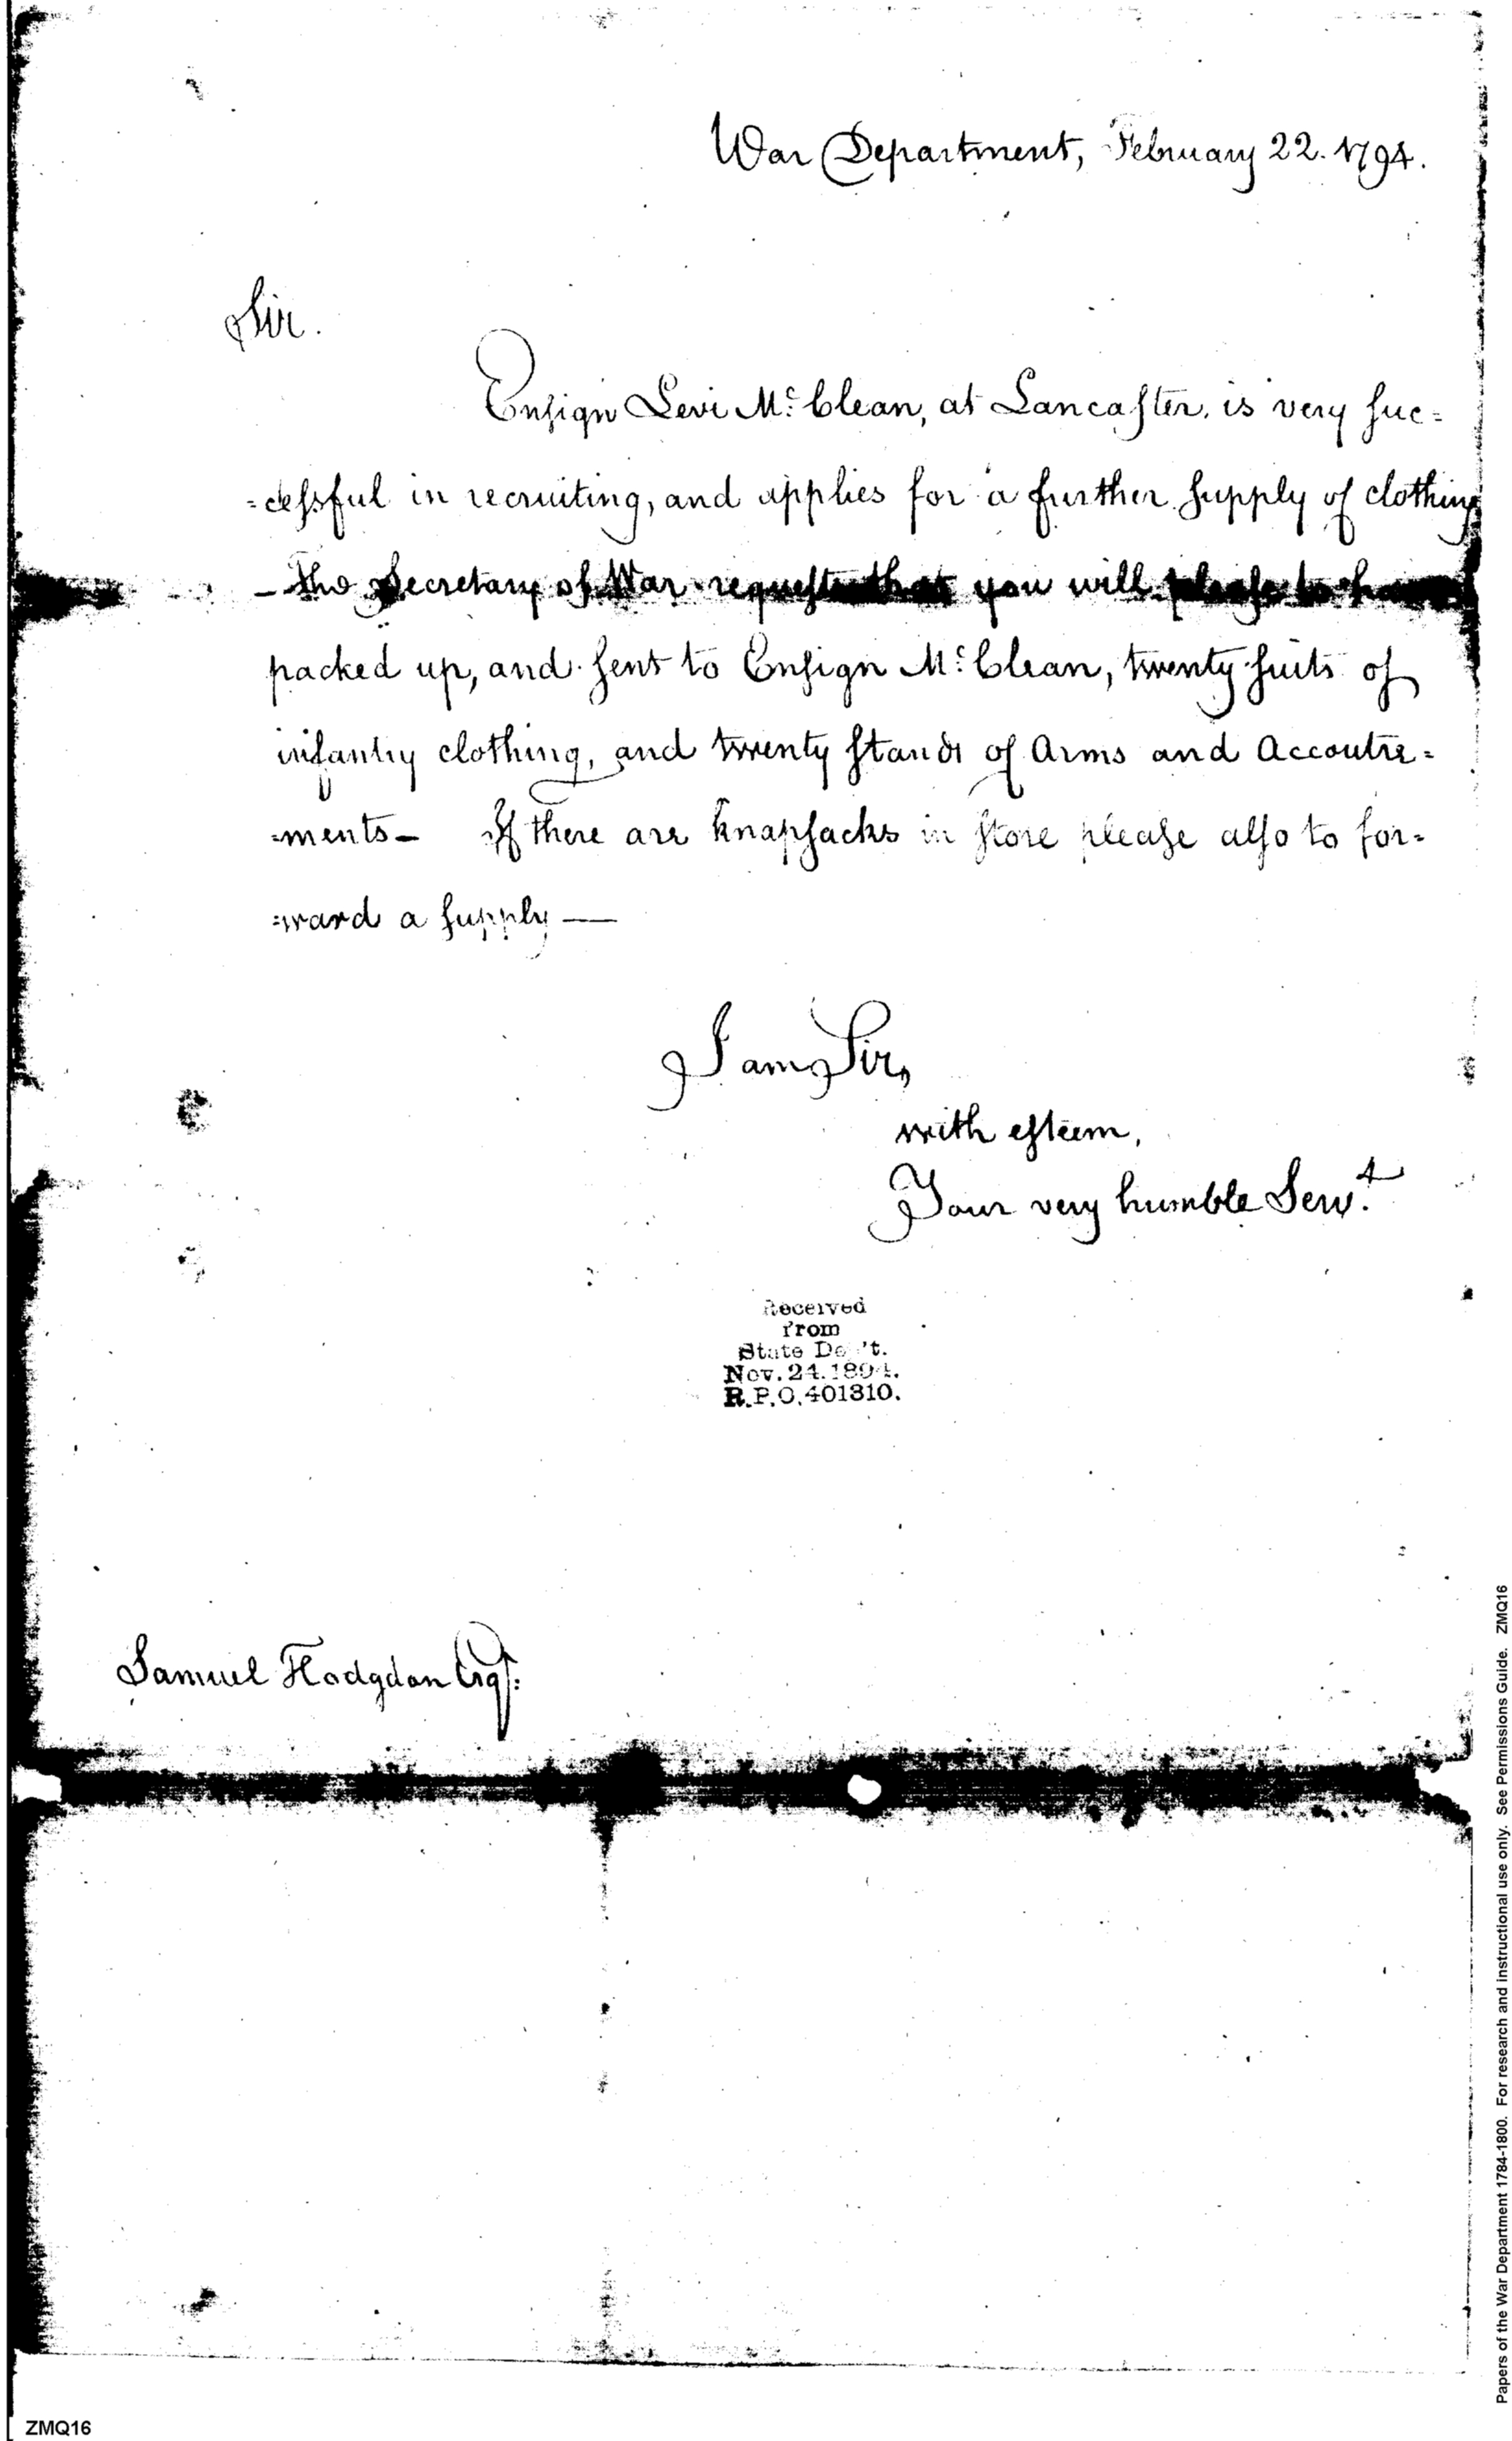 War Department, February 22. 1794.
Sir.
Ensign Levi Mc. Clean, at Lancaster, is very suc=
=cessful in recruiting, and applies for a further supply of clothing
- the Secretary of War requests that you will please to have
packed up, and sent to Ensign Mc. Clean, twenty suits of
infantry clothing, and twenty stands of Arms and Accoutre=
=ments - If there are knapsacks in store please also to for=
=ward a supply —
I am Sir,
with esteem,
Your very humble Servt.
Received
from
State Dep't.
Nov. 24. 1894.
R.P.O. 401310.
Samuel Hodgdon Esqr.
Papers of the War Department 1784-1800. For research and instructional use only. See Permissions Guide. ZMQ16
ZMQ16